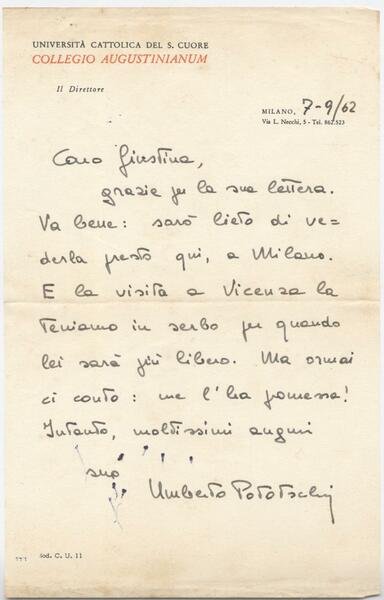 UNIVERSITÀ CATTOLICA DEL S. CUORE
COLLEGIO AUGUSTINIANUM
Il Direttore
MILANO, 7-9/62
Via L. Necchi, 5 - Tel. 862.523
Caro Giustina,
grazie per la sua lettera.
Va bene: sarò lieto di ve=
derla presto qui, a Milano.
E la visita a Vicenza la
teniamo in serbo per quando
lei sarà più libero. Ma ormai
ci conto: me l'ha promessa!
Intanto, moltissimi auguri
suo
Umberto Pototschnig
Mod. C. U. 11